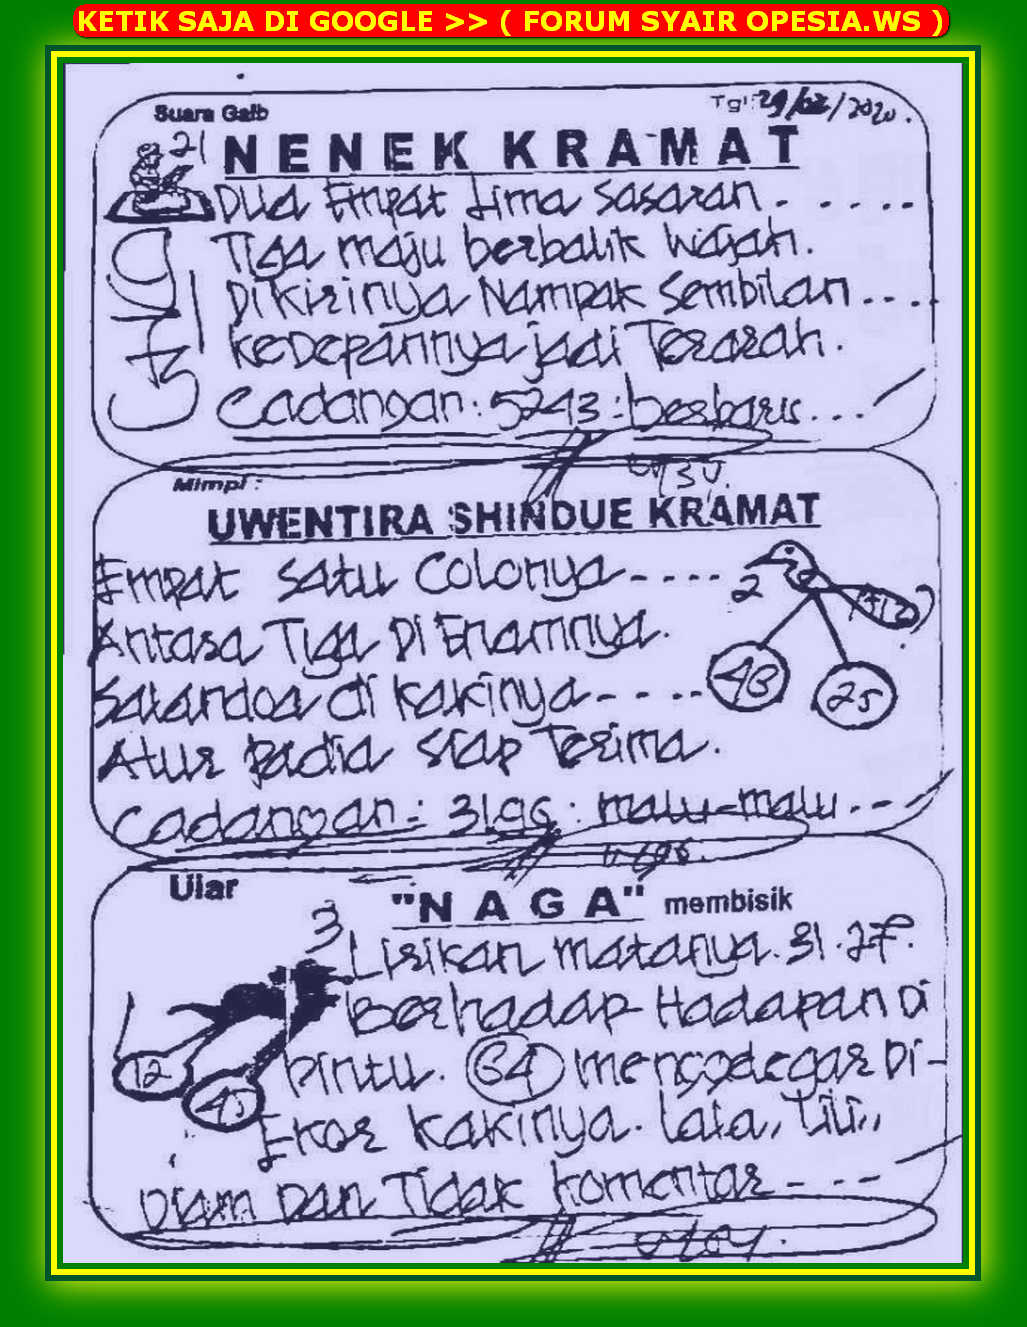 KETIK SAJA DI GOOGLE >> ( FORUM SYAIR OPESIA.WS )
Suara Gaib
Tgl: 29/02/2020.
21
NENEK KRAMAT
Dua Empat Lima Sasaran . . . . . .
Tiga maju berbalik Wajah.
Dikirinya Nampak Sembilan . . . .
KeDepannya jadi Terarah.
Cadangan : 5243 : berbaris . . .
Mimpi :
UWENTIRA SHINDUE KRAMAT
Empat Satu Colonya - - - -
2
Antara Tiga Di Enamnya.
48
25
Salandoa di kakinya - - - -
Atur Badia Siap Terima.
Cadangan : 3196 : malu-malu . - -
Ular
"NAGA" membisik
3
Lirikan matanya. 31.27.
Berhadap Hadapan Di
12
pintu. 64 Di-
45
Ekor kakinya. Lala,, Lili,,
Diam Dan Tidak komentar - - - -